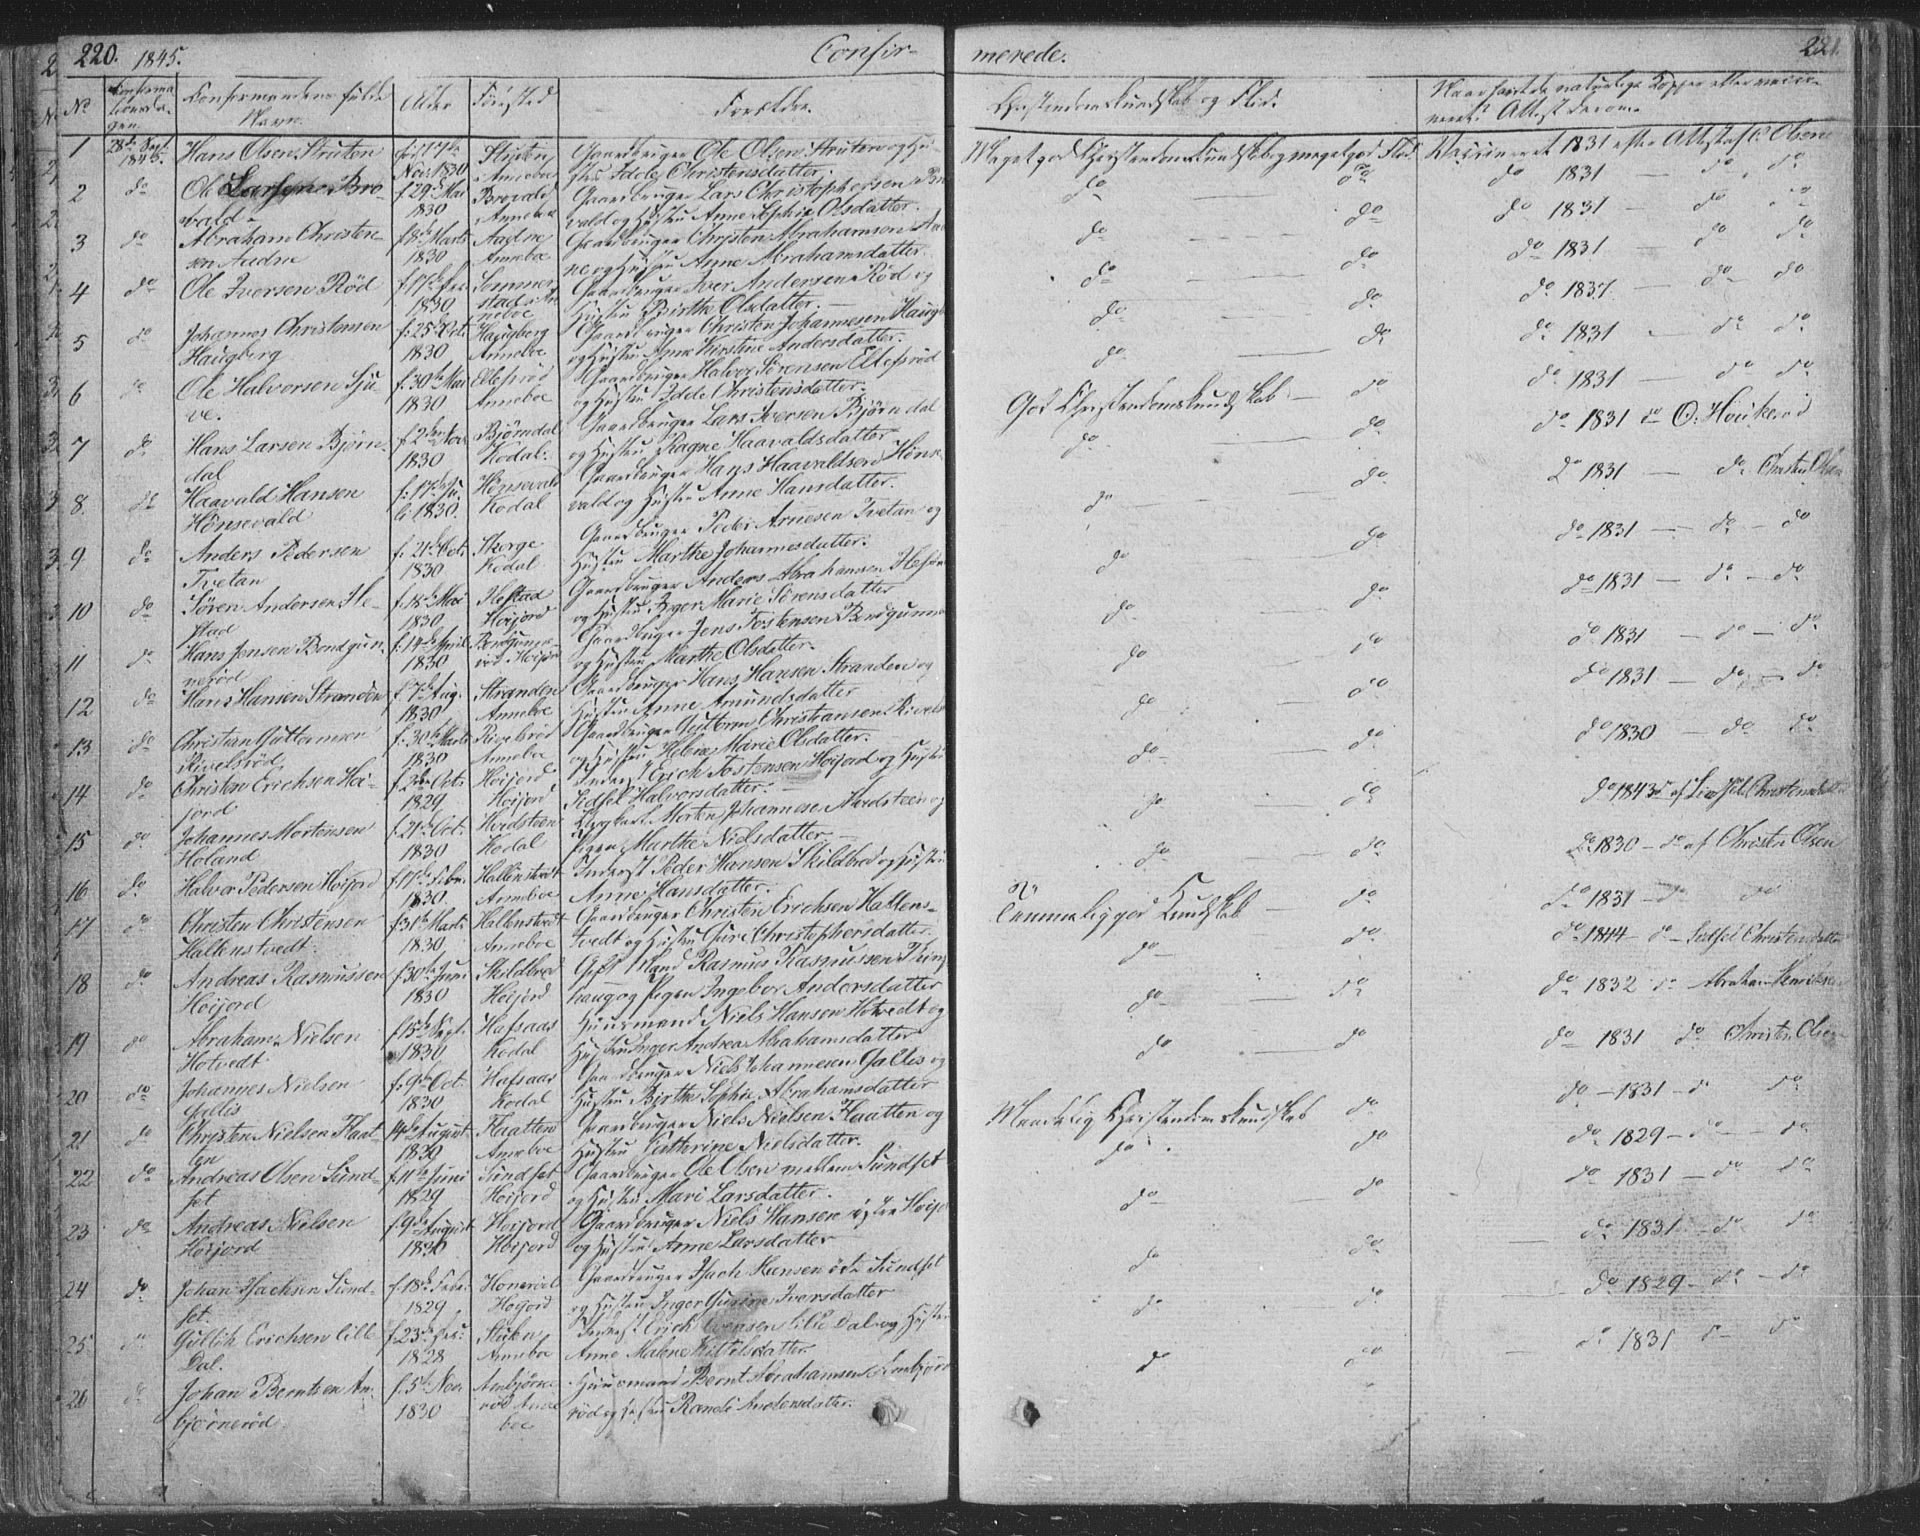 220. 1845. Confir-
merede. 221.
No Confirma-tionsda-gen. Confirmandens fulde Navn. Alder Fødested Forældre. Christendomskundskab og Flid. Naar havt de naturlige Kopper eller vaccineret? Attest derom.
1 28de Sept. 1845. Hans Olsen Struten fød 17de Novr 1830 Struten, Anneboe Gaardbruger Ole Olsen Struten og Hustru Idde Christensdatter. Meget god Christendomskundskab og meget god Flid. Vaccineret 1831 efter Attest af C. Olsen
2 do Ole Larsen Brovald f. 29de Mai 1830 Brovald Anneboe Gaardbruger Lars Christophersen Brovald og Hustru Anne Sophie Olsdatter. do do do 1831 — do do
3 do Abraham Christensen Aadne f. 8de Marts 1830 Aadne Anneboe Gaardbruger Christen Abrahamsen Aadne og Hustru Anne Abrahamsdatter. do do do 1831 — do do
4 do Ole Iversen Rød f. 17de Fe. 1830 Sommerstad Anneboe Gaardbruger Iver Andersen Rød og Hustru Birthe Olsdatter. do do do 1831 — do do
5 do Johannes Christensen Haugberg f. 25de Oct. 1830 Haugberg Anneboe Gaardbruger Christen Johannesen Haugb og Hustru Anne Kirstine Andersdatter. do do do 1831 — do do
6 do Ole Halvorsen Sjuve. f. 30te Mai 1830 Ellefsrød Anneboe Gaardbruger Halvor Sørensen Ellefsrød og Hustru Idde Christensdatter. do do do 1831 — do do
7 do Hans Larsen Bjørndal f. 2den Nov. 1830 Bjørndal Kodal. Gaardbruger Lars Iversen Bjørndal og Hustru Ragne Haavaldsdatter God Christendomskundskab — do do 1831 do O. Høikerød
8. do Haavald Hansen Hønsevald f. 17de Juli 1830. Hønsevald Kodal Gaardbruger Hans Haavaldsen Hønsevald og Hustru Anne Hansdatter. do do do 1831 — do Christen Olsen
9 do Anders Pedersen Tvetan f. 21de Oct. 1830 Skorge Kodal Gaardbruger Peder Arnesen Tvetan og Hustru Marthe Johannesdatter. do do do 1831 — do — do
10 do Søren Andersen Hestad f. 18de Mai 1830 Hestad Høijord Gaardbruger Anders Abrahamsen og Hustru Inger Marie Sørensdatter do do do 1831 — do — do
11 do Hans Jensen Bondgunnerød f. 14de April 1830 Bondgunnerød Høijord Gaardbruger Jens Tostensen Bondgunne og Hustru Marthe Olsdatter. do do do 1831 — do — do
12 do Hans Hansen Stranden f. 7de Aug. 1830 Stranden Anneboe Gaardbruger Hans Hansen Stranden og Hustru Anne Amundsdatter do do do 1831 — do — do
13 do Christian Guttormsen Rivelsrød f. 30te Marts 1830 Rivelsrød Anneboe Gaardbruger Guttorm Christiansen Rivels og Hustru Helene Marie Olsdatter. do do do 1830 — do — do
14 do Christen Erichsen Høijord f. 2den Oct. 1829 Høijord Høijord Inderst Erich Tostensen Høijord og Hustru Sidsel Halvorsdatter. do do do 1843 af Sidsel Christensdatter
15 do Johannes Mortensen Holand f. 21de Oct. 1830 Hvidsteen Kodal Ungkarl Morten Johannesen Hvidsteen og Pigen Marthe Nielsdatter do do do 1830 — do af Christen Olsen
16 do Halvor Pedersen Høijord f. 17de Febr. 1830 Hallenstvedt Anneboe Inderst Peder Hansen Skildbred og Hustru Anne Hansdatter. do do 1831 — do do
17 do Christen Christensen Hallenstvedt. f. 31te Marts 1830 Hallenstvedt Anneboe Gaardbruger Christen Erichsen Hallenstvedt og Hustru Guri Christophersdatter. Temmelig god Kundskab — do do 1844 — do — Sidsel Christensdatter
18 do Andreas Rasmussen Høijord f. 30te Juni 1830 Skildbred Høijord Gift Mand Rasmus Rasmussen og Pigen Ingebor Andersdatter do do do 1832 do Abraham Henriksen
19 do Abraham Nielsen Hotvedt f. 15de Sept. 1830 Hafsaas Kodal Huusmand Niels Hansen Hotvedt og Hustru Inger Andrea Abrahamsdatter do do do 1831 do Christen Olsen
20 do Johannes Nielsen Gallis f. 9de Oct. 1830 Hafsaas Kodal Gaardbruger Niels Johannesen Gallis og Hustru Birthe Sophie Abrahamsdatter do do do — 1831 — do do
21 do Christen Nielsen Flaatten 14de August 1830 Flaatten Anneboe Gaardbruger Niels Nielsen Flaatten og Hustru Cathrine Nielsdatter. Maadelig Christendomskundskab do do 1829 — do — do
22 do Andreas Olsen Sundset f. 11te Juni 1829 Sundset Høijord Gaardbruger Ole Olsen mellem Sundset og Hustru Mari Larsdatter. do do do 1831 — do — do
23 do Andreas Nielsen Høijord f. 9de August 1830 Høijord Høijord Gaardbruger Niels Hansen Høijord og Hustru Anne Larsdatter do do do 1831 — do — do
24 do Johan Isachsen Sundset. f. 18de Febr. 1829 Høijord Gaardbruger Isach Hansen Sundset og Hustru Inger Gurine Iversdatter do do do 1829 — do — do
25 Gullik Erichsen lille Dal. f. 23de 1828 Anneboe Inderst Erich lille Dal og Hustru Anne Malene Kittelsdatter. do do do 1831 do do
26 do Johan Berntsen Ambjørnerød. f. 5te Nov. 1830 Ambjørnerød Anneboe Huusmand Bernt Abrahamsen Ambjørnerød og Hustru Randi Andersdatter. do do